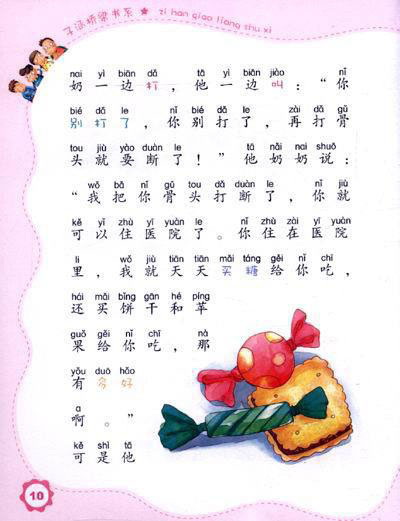 子涵桥梁书系 ★ zi han qiao liang shu xi
nai yì biān dǎ tā yì biān jiào nǐ
奶一边打，他一边叫：“你
bié dǎ le nǐ bié dǎ le zài dǎ gǔ
别打了，你别打了，再打骨
tou jiù yào duàn le tā nǎi nai shuō
头就要断了！”他奶奶说：
wǒ bǎ nǐ gǔ tou dǎ duàn le nǐ jiù
“我把你骨头打断了，你就
kě yǐ zhù yī yuàn le nǐ zhù zài yī yuàn
可以住医院了。你住在医院
li wǒ jiù tiān tiān mǎi táng gěi nǐ chī
里，我就天天买糖给你吃，
hái mǎi bǐng gān hé píng
还买饼干和苹
guǒ gěi nǐ chī nà
果给你吃，那
yǒu duō hǎo
有多好
a
啊。”
kě shì tā
可是他
10